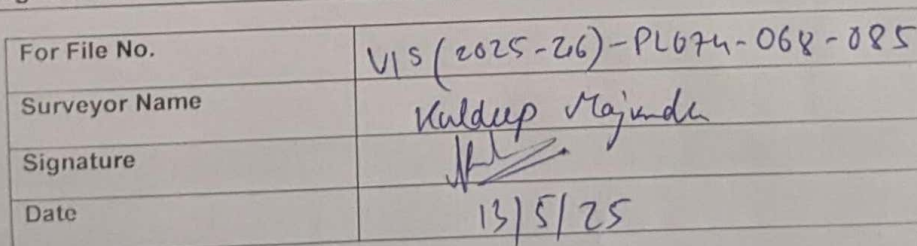 For File No. VIS (2025-26)-PL074-068-085
Surveyor Name Kuldeep
Signature
Date 13/5/25